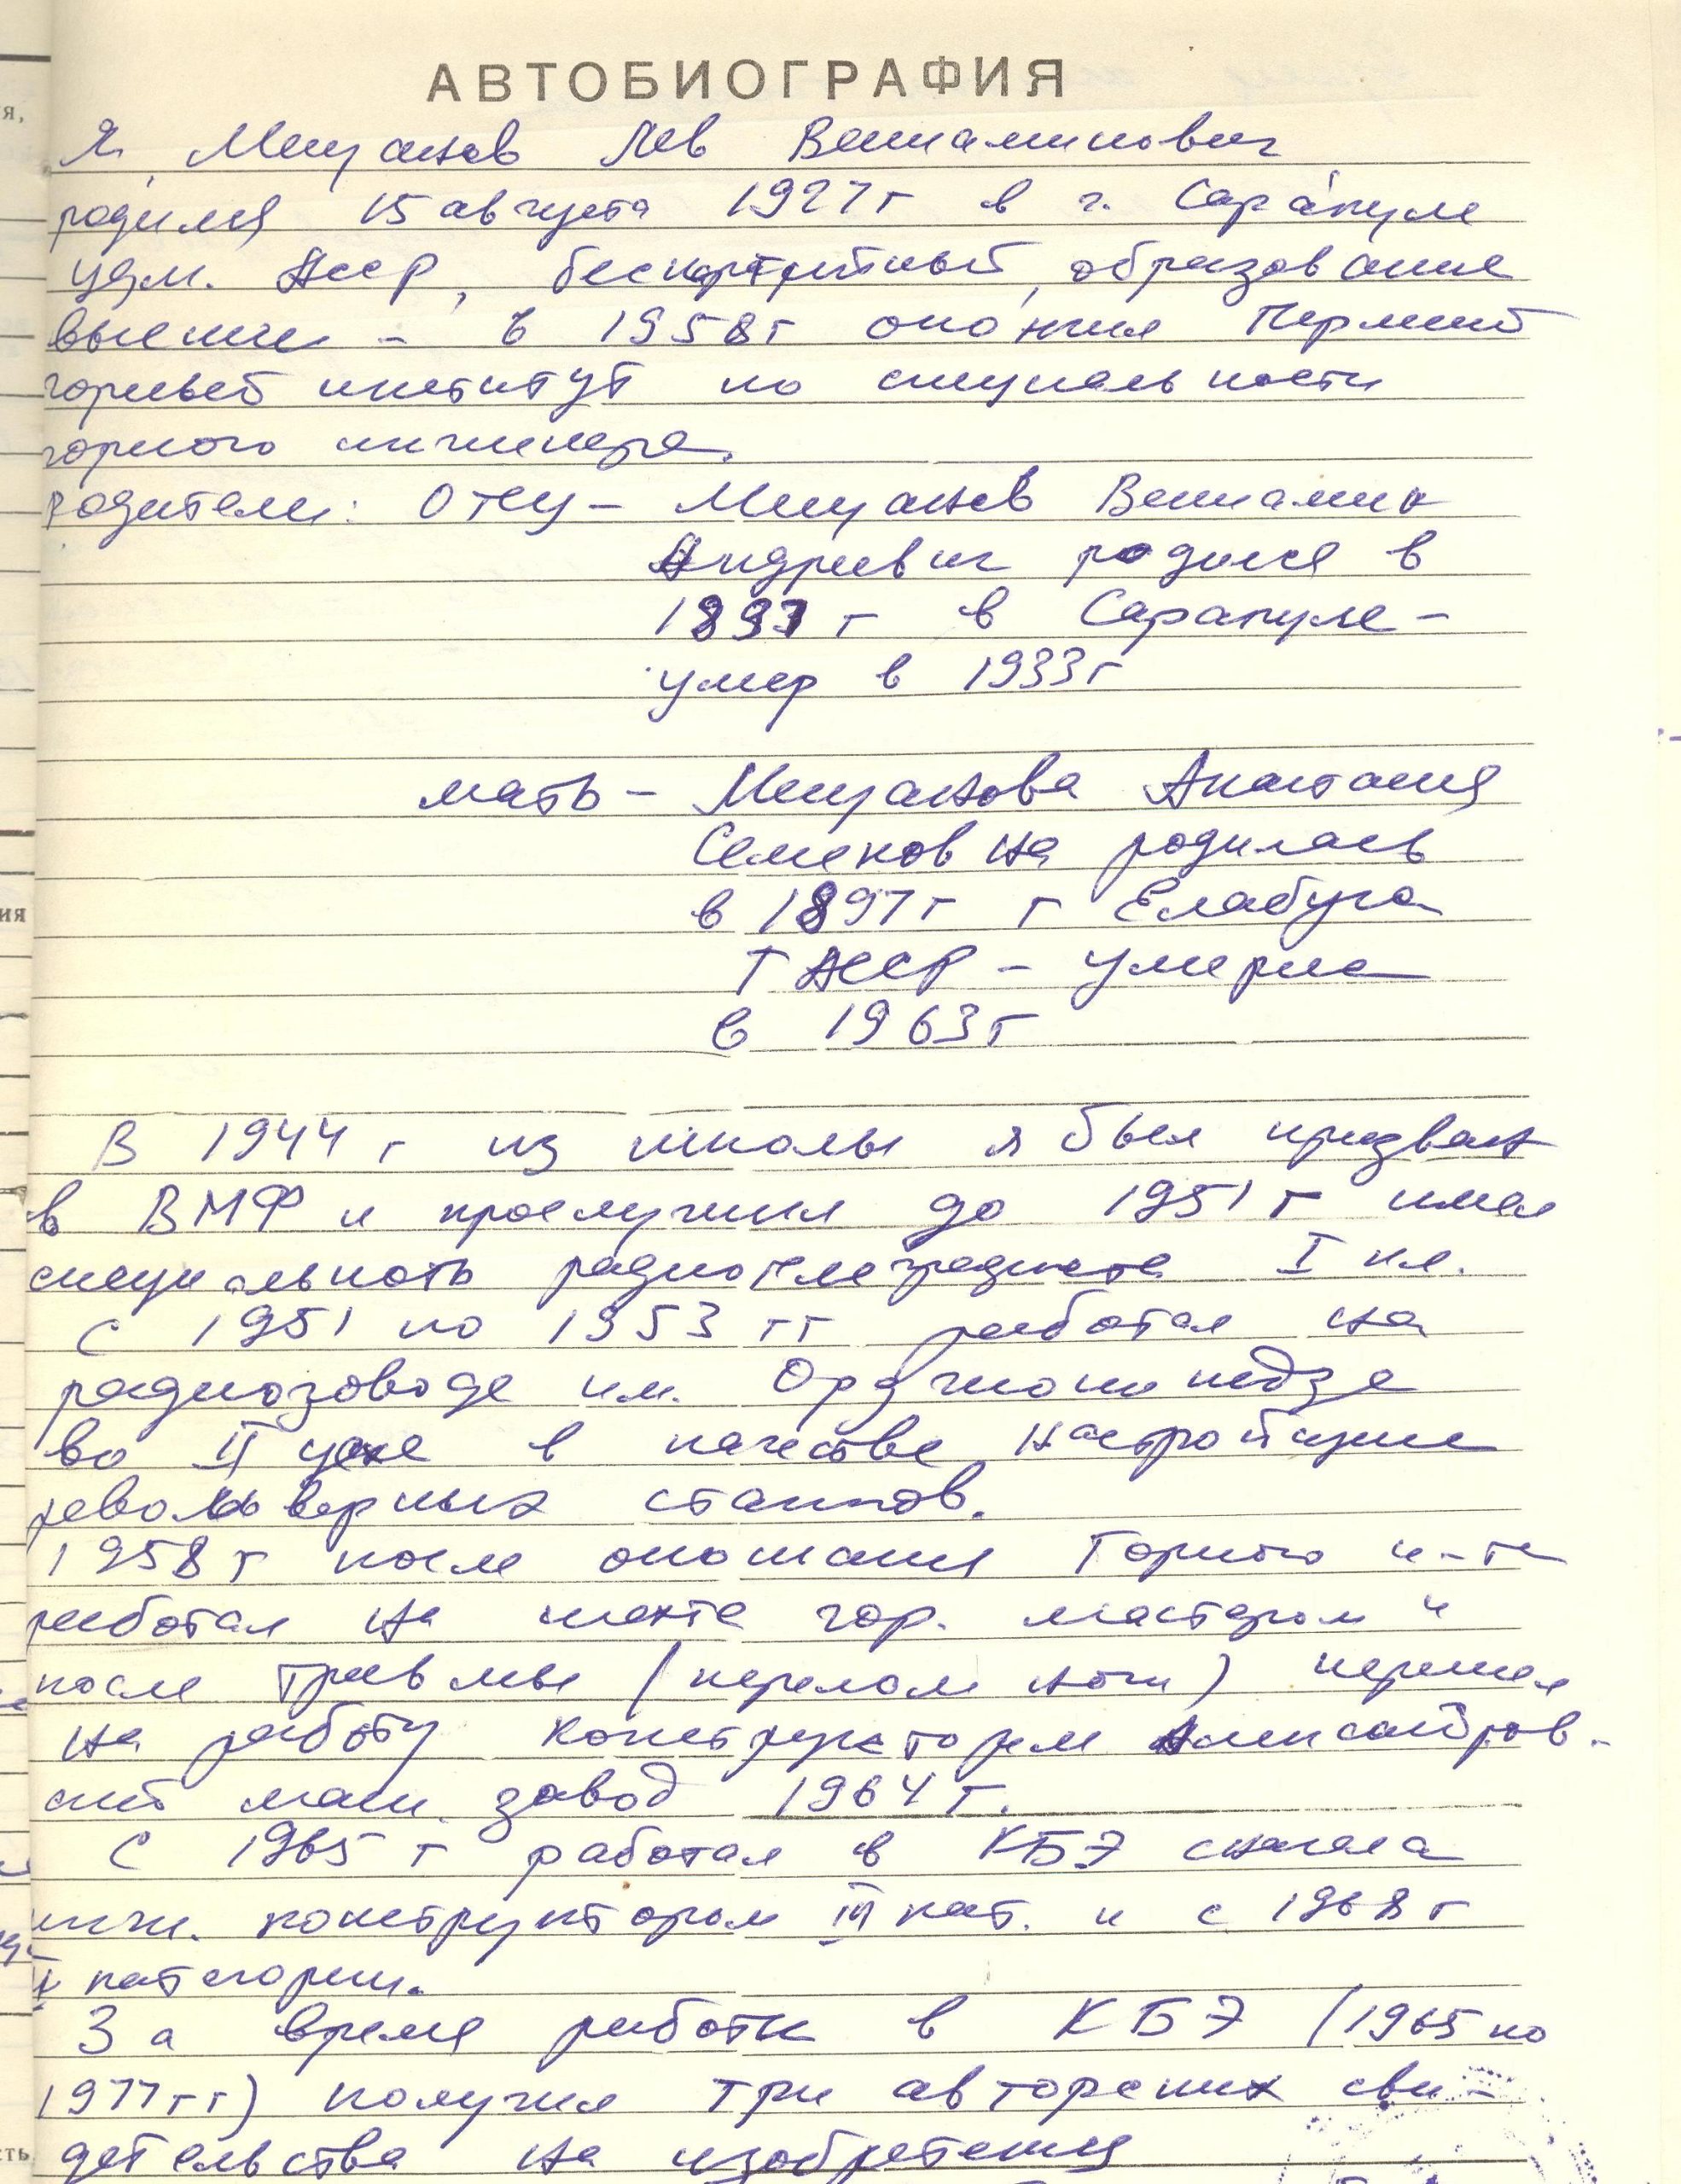 АВТОБИОГРАФИЯ
Я, Мещанов Лев Вениаминович
родился 15 августа 1927г в г. Сарапуле
Удм. АССР, беспартийный, образование
высшее - в 1958г окончил Пермский
горный институт по специальности
горного инженера.
Родители: Отец - Мещанов Вениамин
Андреевич родился в
г в Сарапуле -
умер в 1933г
мать - Мещанова Анастасия
Семеновна родилась
в 1897г г Елабуга
ТАССР - умерла
в 1963г
В 1944 г из школы я был призван
в ВМФ и прослужил до 1951 г имел
специальность радиотелеграфиста I кл.
С 1951 по 1953 гг работал на
радиозаводе им. Орджоникидзе
во II цехе в качестве настройщика
револьверных станков.
1958 г после окончания Горного и-та
работал на шахте гор. мастером и
после травмы (перелом ноги) перешел
на работу конструктором Александров-
ский маш. завод 1964 г.
С 1965 г работал в КБЭ сначала
инж. конструктором III кат. и с 1968 г
категории.
За время работы в КБЭ (1965 по
1977гг) получил три авторских сви-
детельства на изобретения